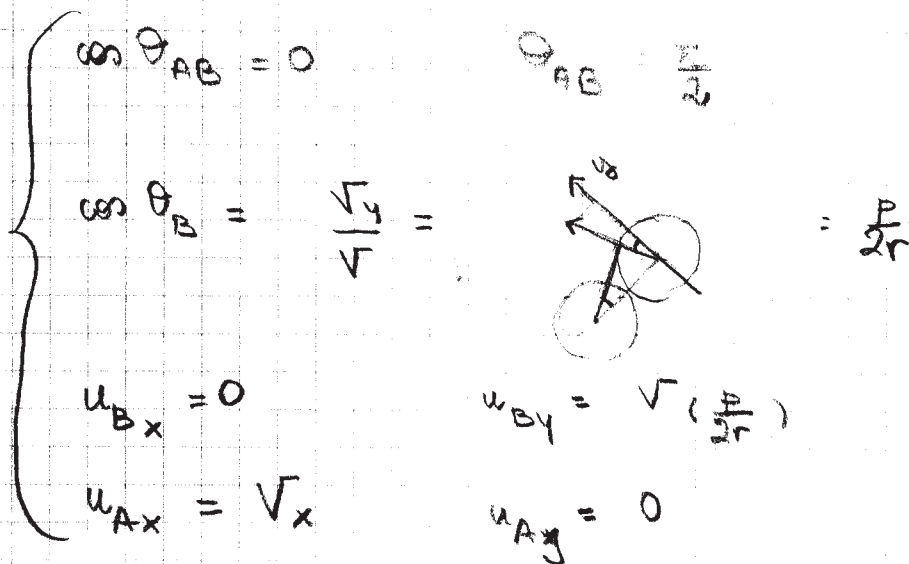 cos θ_AB = 0    θ_AB = π/2
cos θ_B = V_y/V =    = p/2r
u_Bx = 0    u_By = V (p/2r)
u_Ax = V_x    u_Ay = 0